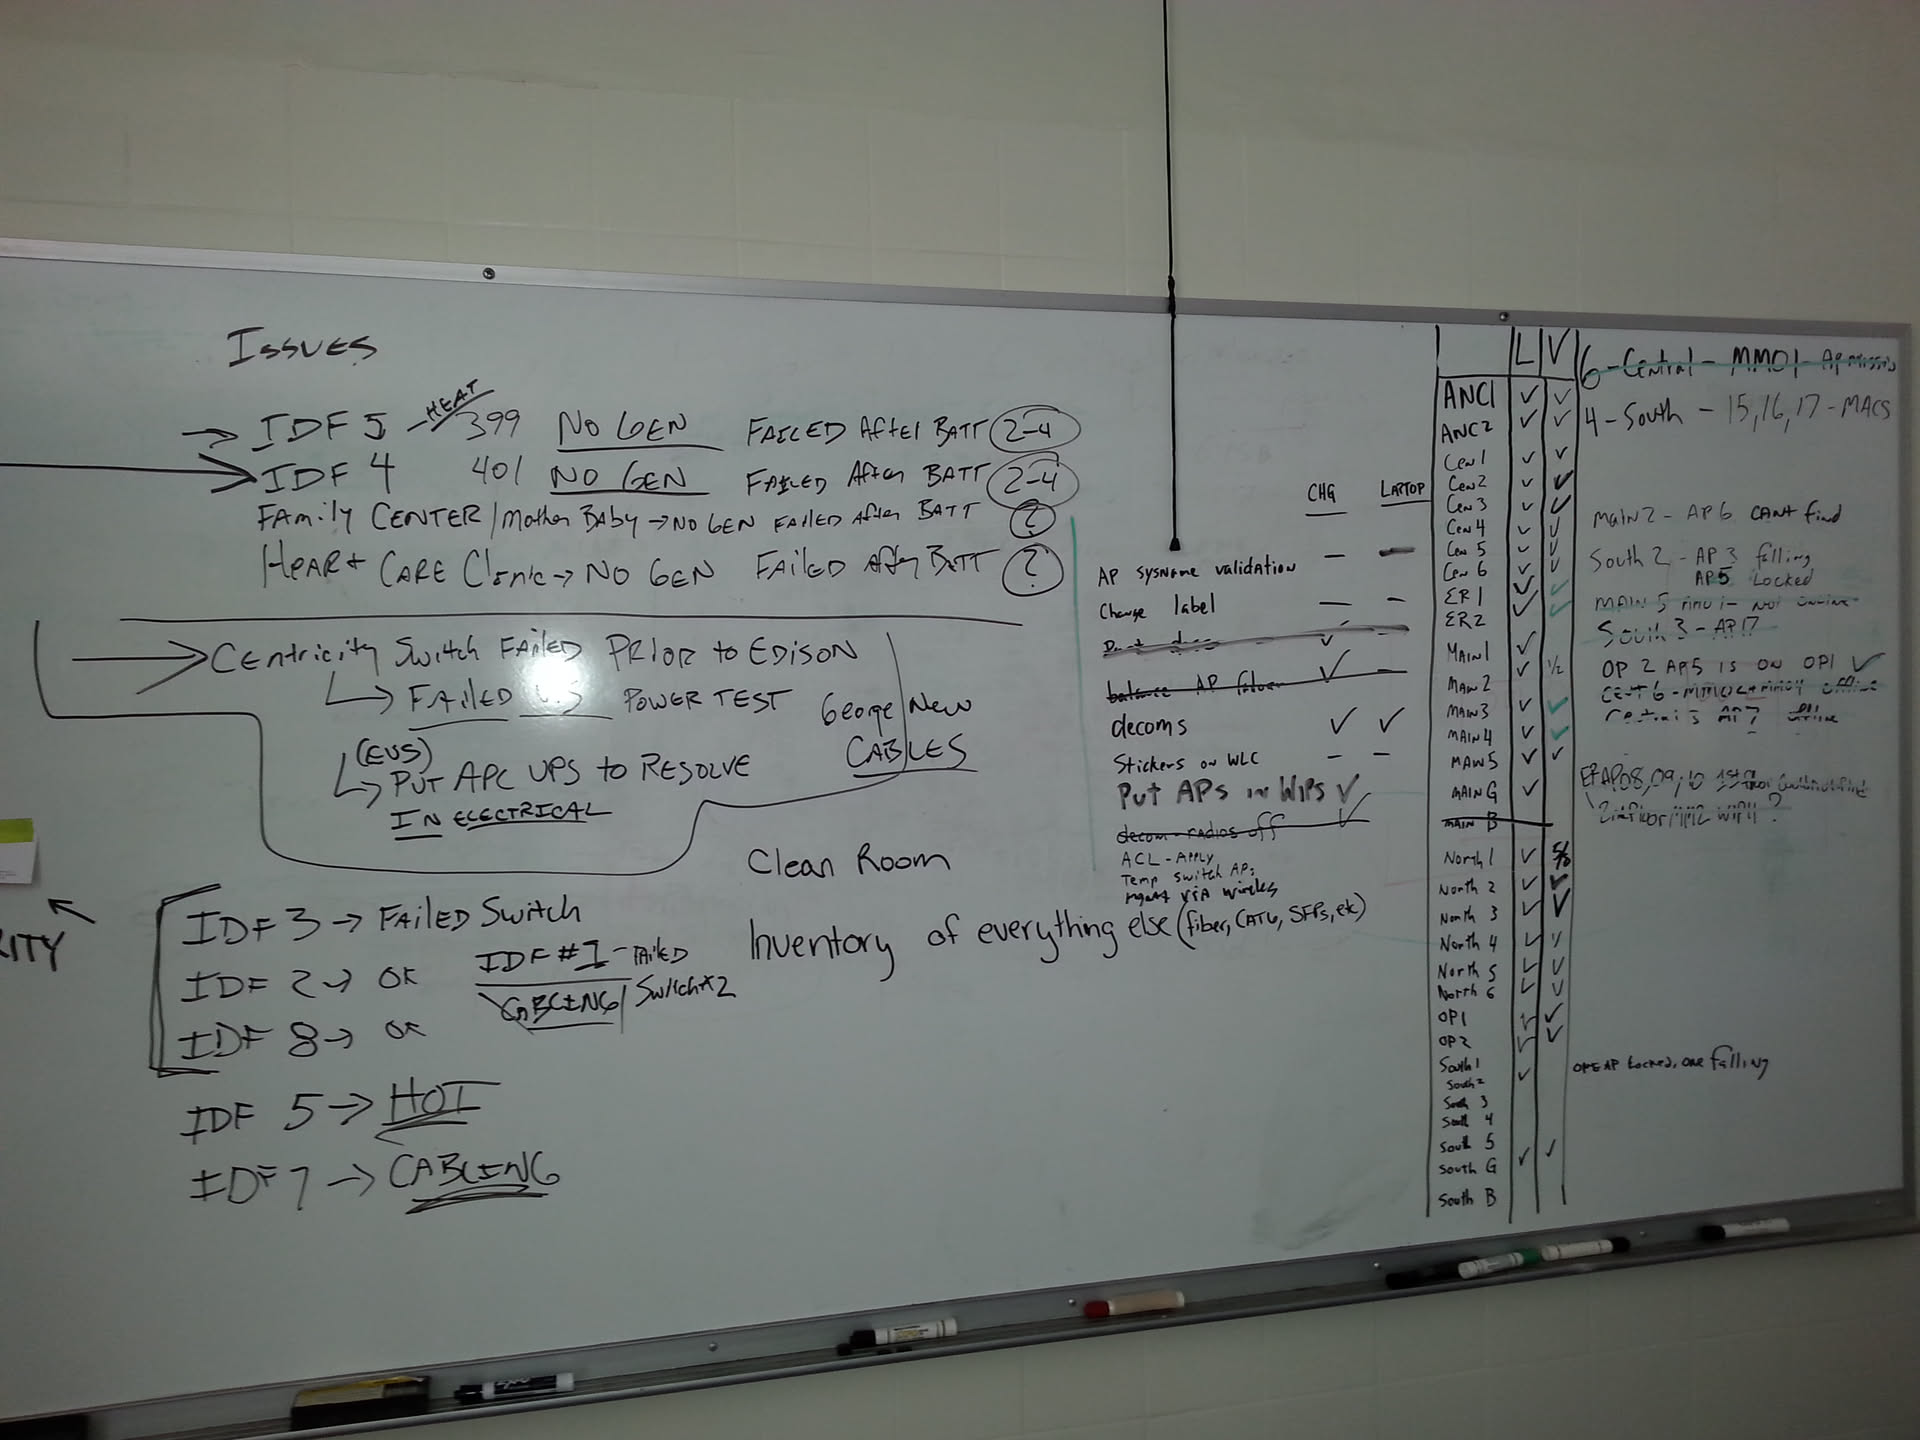 ISSUES
→ IDF 5 - HEAT 399 NO GEN FAILED AFTER BATT 2-4
→ IDF 4 401 NO GEN FAILED AFTER BATT 2-4
FAMILY CENTER / Mother BABY → NO GEN FAILED AFTER BATT ?
HEART CARE Clinic → NO GEN FAILED AFTER BATT ?
→ CENTRICITY SWITCH FAILED PRIOR TO EDISON
↳ FAILED POWER TEST
George New
CABLES
(EVS)
↳ PUT APC UPS TO RESOLVE
IN ELECTRICAL
Clean Room
Inventory of everything else (fiber, CAT6, SFPs, etc)
RITY
IDF 3 → FAILED SWITCH
IDF 2 → OK
IDF 8 → OK
IDF #1 - FAILED
CABLING Switch * 2
IDF 5 → HOT
IDF 7 → CABLING
CHG LAPTOP
AP sysname validation — —
Change label — —
balance AP ✓ —
decoms ✓ ✓
Stickers on WLC — —
Put APs in WIPS ✓
decom - radios off ✓
ACL - APPLY
Temp switch APs
mgmt VIA wireless
L V
ANC1 ✓ ✓
ANC2 ✓ ✓
Cen 1 ✓ ✓
Cen 2 ✓ ✓
Cen 3 ✓ ✓
Cen 4 ✓ ✓
Cen 5 ✓ ✓
Cen 6 ✓ ✓
ER1 ✓ ✓
ER2 ✓ ✓
MAIN 1 ✓
MAIN 2 ✓ 1/2
MAIN 3 ✓ ✓
MAIN 4 ✓ ✓
MAIN 5 ✓ ✓
MAIN G ✓
MAIN B
North 1 ✓ 5/8
North 2 ✓ ✓
North 3 ✓ ✓
North 4 ✓ ✓
North 5 ✓ ✓
North 6 ✓ ✓
OP1 ✓ ✓
OP2 ✓ ✓
South 1
South 2 ✓
South 3
South 4
South 5
South G ✓ ✓
South B
6 - Central - MM01 - AP missing
4 - South - 15, 16, 17 - MACS
Main 2 - AP 6 CANT find
South 2 - AP 3 falling,
AP5 Locked
MAIN 5 MM01 - NOT ONLINE
South 3 - AP17
OP 2 AP5 IS ON OP1 ✓
CENT 6 - offline
AP7 offline
ONE AP Locked, one falling